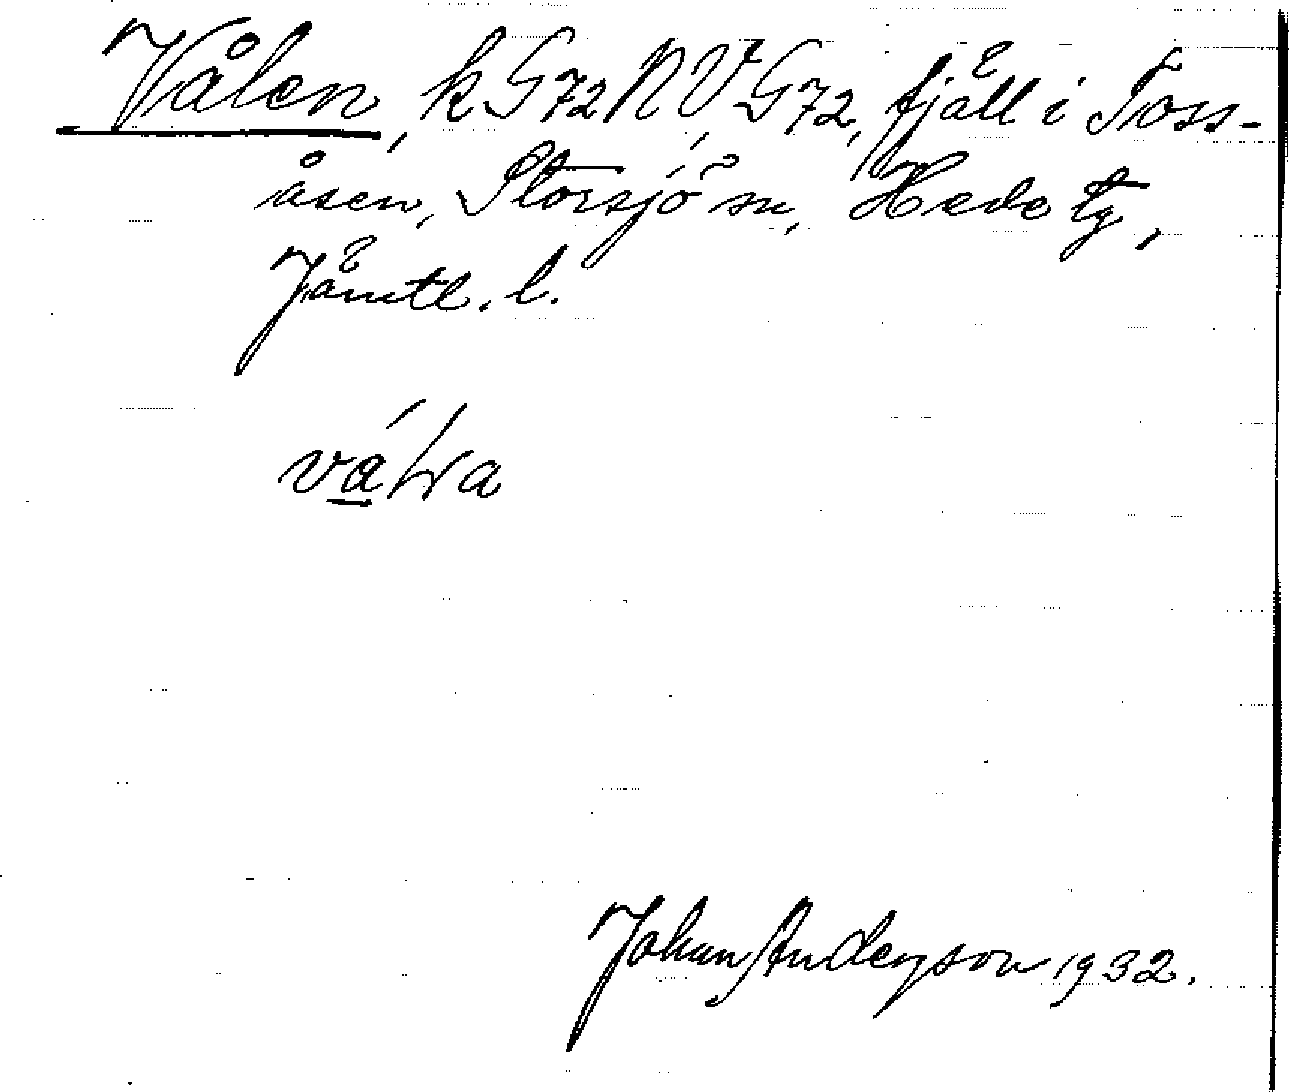 Vålen, k G72 NV G72, fjäll i Toss-
åsen, Storsjö sn, Hede tg,
Jämtl. l.
Johan Anderson 1932.